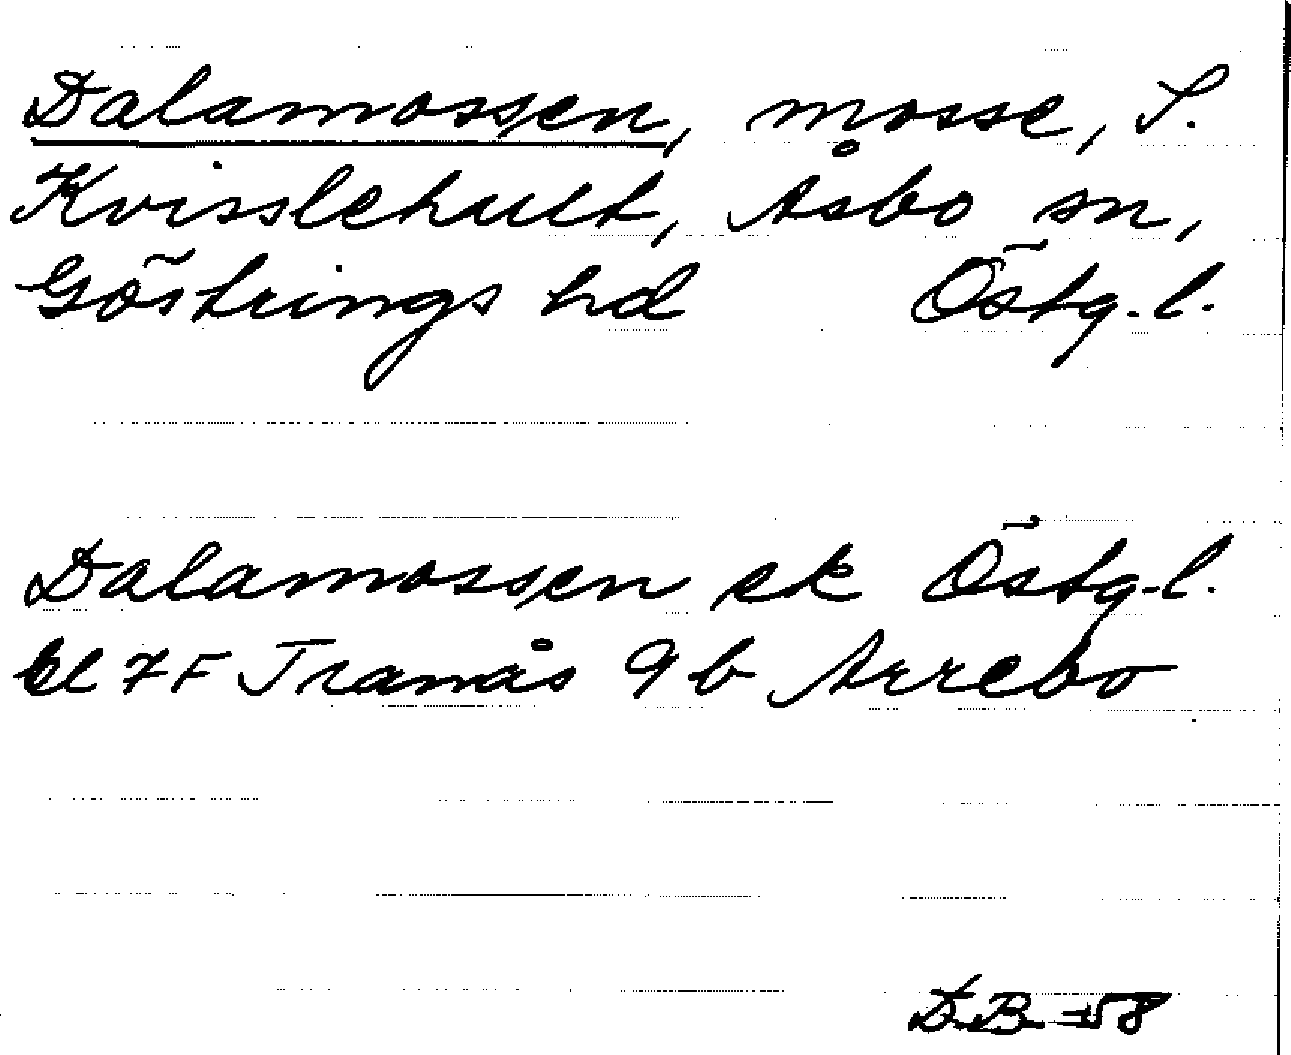 Dalamossen, mosse, S.
Kvisslehult, Åsbo sn,
Göstrings hd Östg.l.
Dalamossen ek Östg.l.
bl 7F Tranås 9b Arrebo
D.B. =58